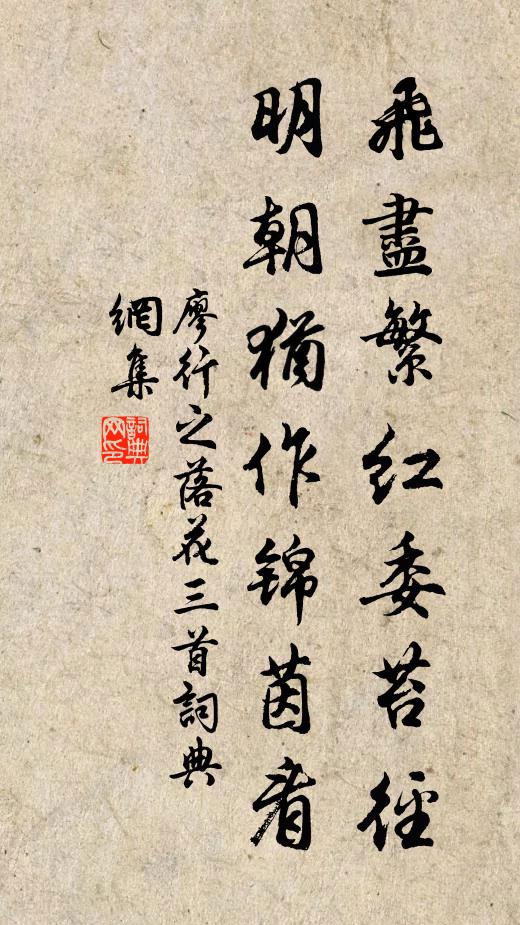 飛盡繁紅委苔徑
明朝猶作錦茵看
廖行之落花三首詞典
網集
詞典網印